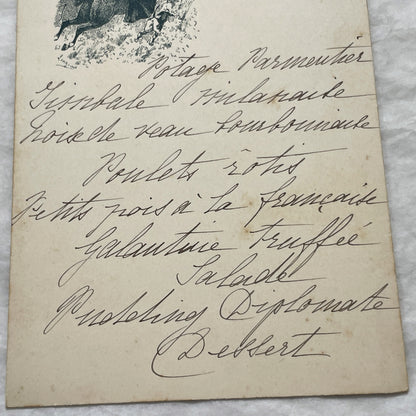 Potage Parmentier
Timbale milanaise
Noix de veau bourbonnaise
Poulets rôtis
Petits pois à la française
Galantine truffée
Salade
Pudding Diplomate
Dessert